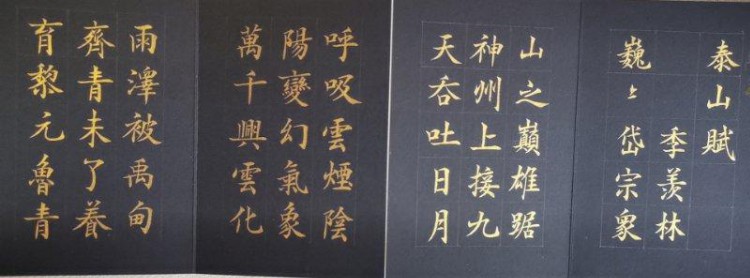 泰山賦
季羨林
巍〻岱宗衆
山之巔雄踞
神州上接九
天吞吐日月
呼吸雲煙陰
陽變幻氣象
萬千興雲化
雨澤被禹甸
齊青未了養
育黎元魯青